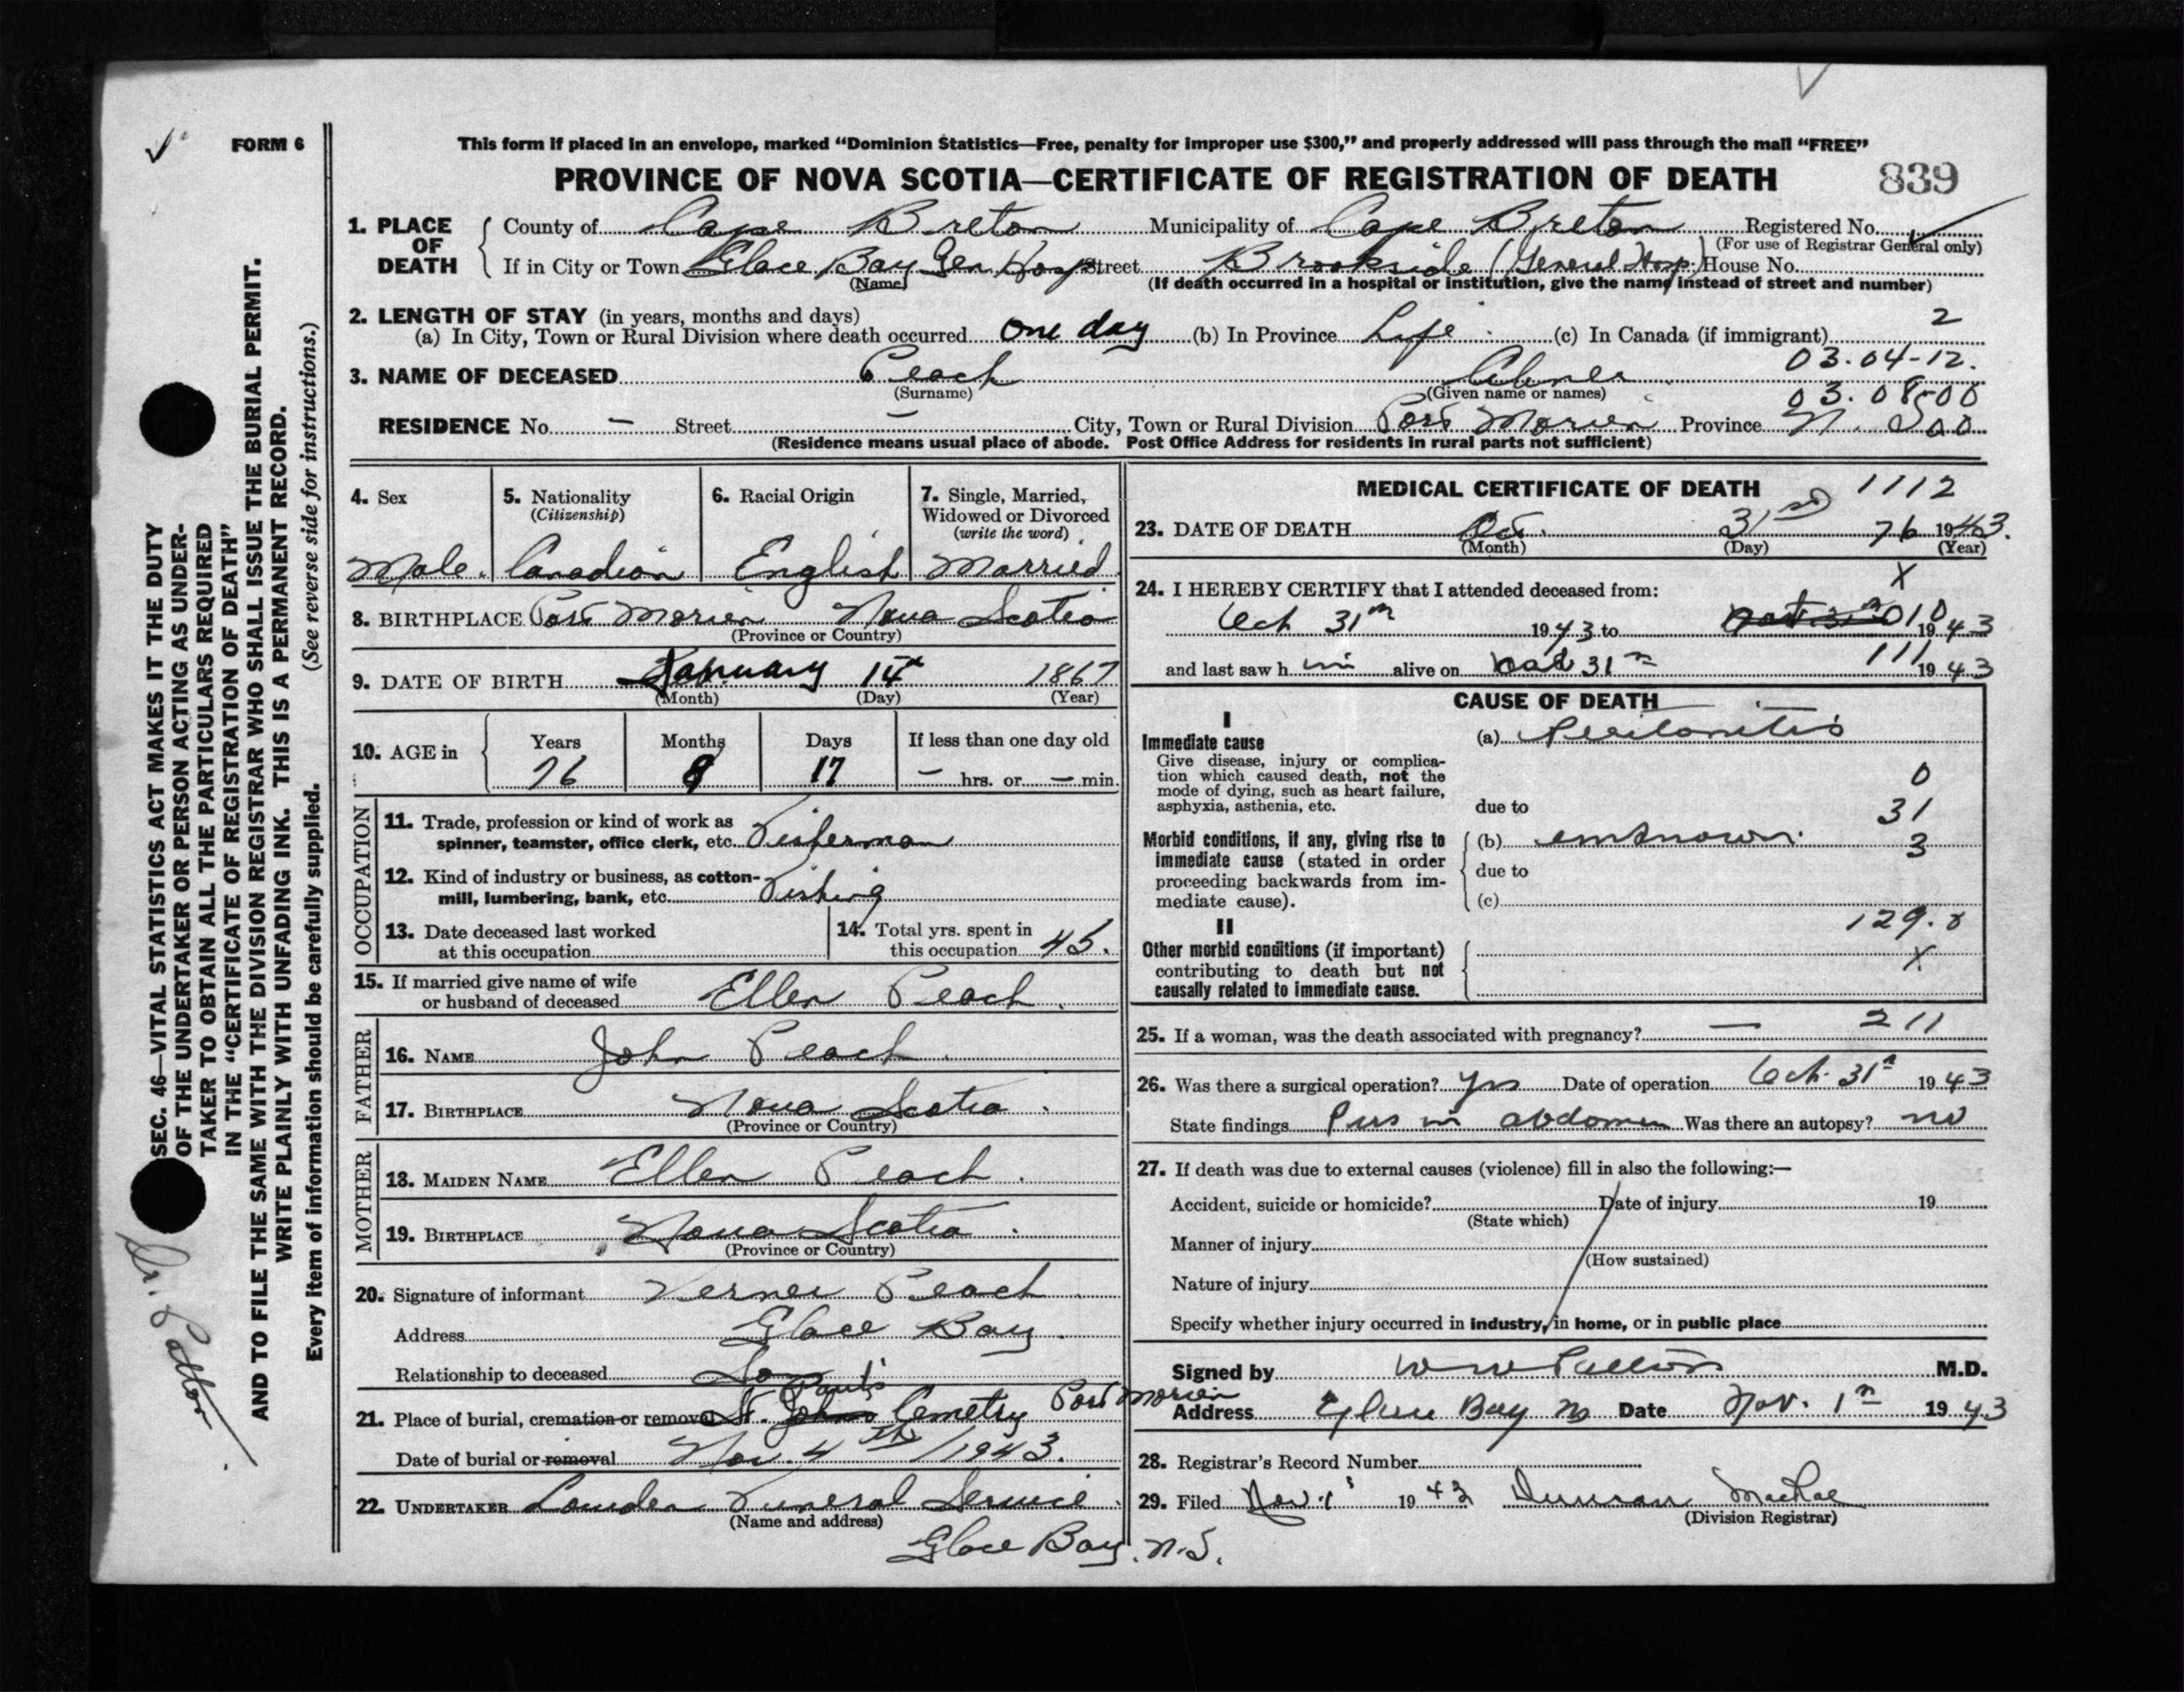 This form if placed in an envelope, marked "Dominion Statistics—Free, penalty for improper use $300," and properly addressed will pass through the mail "FREE"
FORM 6
PROVINCE OF NOVA SCOTIA—CERTIFICATE OF REGISTRATION OF DEATH 839
1. PLACE OF DEATH County of Cape Breton Municipality of Cape Breton Registered No.
(For use of Registrar General only)
If in City or Town Glace Bay Gen Hosp Street Brookside (General Hosp.) House No.
(Name) (If death occurred in a hospital or institution, give the name instead of street and number)
2. LENGTH OF STAY (in years, months and days) 2
(a) In City, Town or Rural Division where death occurred One day (b) In Province Life (c) In Canada (if immigrant)
03.04-12.
3. NAME OF DECEASED Peach Abner
(Surname) (Given name or names) 03.08-00
RESIDENCE No. – Street – City, Town or Rural Division Port Morien Province N. S
(Residence means usual place of abode. Post Office Address for residents in rural parts not sufficient)
4. Sex 5. Nationality (Citizenship) 6. Racial Origin 7. Single, Married, Widowed or Divorced (write the word)
Male. Canadian English Married
8. BIRTHPLACE Port Morien Nova Scotia
(Province or Country)
9. DATE OF BIRTH January 14th 1867
(Month) (Day) (Year)
10. AGE in Years Months Days If less than one day old
76 9 17 – hrs. or – min.
OCCUPATION
11. Trade, profession or kind of work as
spinner, teamster, office clerk, etc. Fisherman
12. Kind of industry or business, as cotton-
mill, lumbering, bank, etc. Fishing
13. Date deceased last worked
at this occupation
14. Total yrs. spent in
this occupation 45.
15. If married give name of wife
or husband of deceased Ellen Peach.
FATHER
16. NAME John Peach.
17. BIRTHPLACE Nova Scotia.
(Province or Country)
MOTHER
18. MAIDEN NAME Ellen Peach.
19. BIRTHPLACE Nova Scotia.
(Province or Country)
20. Signature of informant Verner Peach.
Address Glace Bay.
Relationship to deceased Son
21. Place of burial, cremation or removal St. Johns Paul's Cemetry Port Morien
Date of burial or removal Nov. 4th/1943.
22. UNDERTAKER Lowden Funeral Service.
(Name and address)
Glace Bay. N.S.
MEDICAL CERTIFICATE OF DEATH 1112
23. DATE OF DEATH Oct. 31st 76 1943.
(Month) (Day) (Year)
X
24. I HEREBY CERTIFY that I attended deceased from:
Oct 31st 1943 to 010 1943
and last saw h im alive on Oct 31st 111 1943
CAUSE OF DEATH
I
Immediate cause
Give disease, injury or complica-
tion which caused death, not the
mode of dying, such as heart failure,
asphyxia, asthenia, etc.
(a) Peritonitis
0
due to 31
Morbid conditions, if any, giving rise to
immediate cause (stated in order
proceeding backwards from im-
mediate cause).
(b) unknown. 3
due to
(c)
129.
II
Other morbid conditions (if important)
contributing to death but not
causally related to immediate cause.
X
25. If a woman, was the death associated with pregnancy? — 211
26. Was there a surgical operation? yes Date of operation Oct. 31st 1943
State findings Pus in abdomen Was there an autopsy? no
27. If death was due to external causes (violence) fill in also the following:—
Accident, suicide or homicide? Date of injury 19
(State which)
Manner of injury
(How sustained)
Nature of injury
Specify whether injury occurred in industry, in home, or in public place
Signed by W W Patton M.D.
Address Glace Bay NS Date Nov. 1st 1943
28. Registrar's Record Number
29. Filed Nov. 1st 1943 Duncan MacRae
(Division Registrar)
SEC. 46—VITAL STATISTICS ACT MAKES IT THE DUTY
OF THE UNDERTAKER OR PERSON ACTING AS UNDER-
TAKER TO OBTAIN ALL THE PARTICULARS REQUIRED
IN THE "CERTIFICATE OF REGISTRATION OF DEATH"
AND TO FILE THE SAME WITH THE DIVISION REGISTRAR WHO SHALL ISSUE THE BURIAL PERMIT.
WRITE PLAINLY WITH UNFADING INK. THIS IS A PERMANENT RECORD.
Every item of information should be carefully supplied. (See reverse side for instructions.)
Dr. Patton